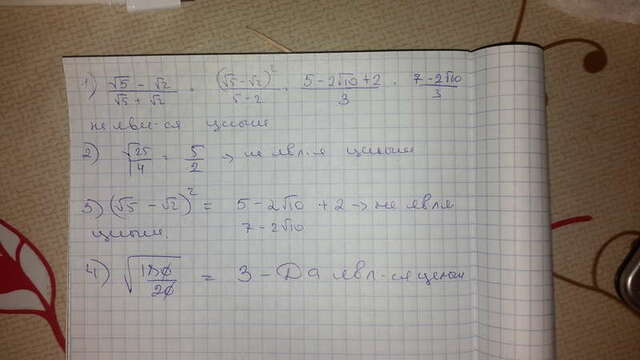 1) (√5 − √2)/(√5 + √2) = (√5 − √2)²/(5 − 2) = (5 − 2√10 + 2)/3 = (7 − 2√10)/3
не явл-ся целым
2) √25/4 = 5/2 → не явл-я целым
3) (√5 − √2)² = 5 − 2√10 + 2 → не явля
целым. 7 − 2√10
4) √(180/20) = 3 − Да явл-ся целым